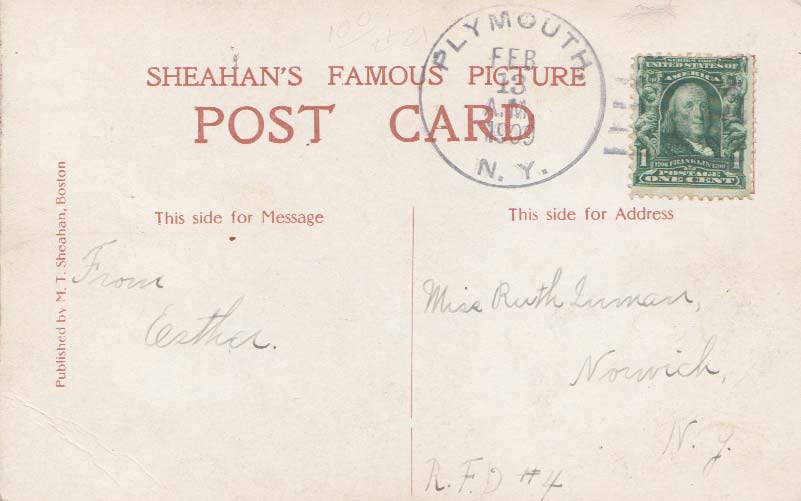 PLYMOUTH,
FEB
13
A.M.
1909
N. Y.
SERIES 1902
UNITED STATES OF
AMERICA
1 1
1706 FRANKLIN 1790
POSTAGE
ONE CENT
SHEAHAN'S FAMOUS PICTURE
POST CARD
This side for Message
This side for Address
Published by M. T. Sheahan, Boston
From
Esther.
Miss Ruth Inman,
Norwich,
N. Y.
R. F. D #4